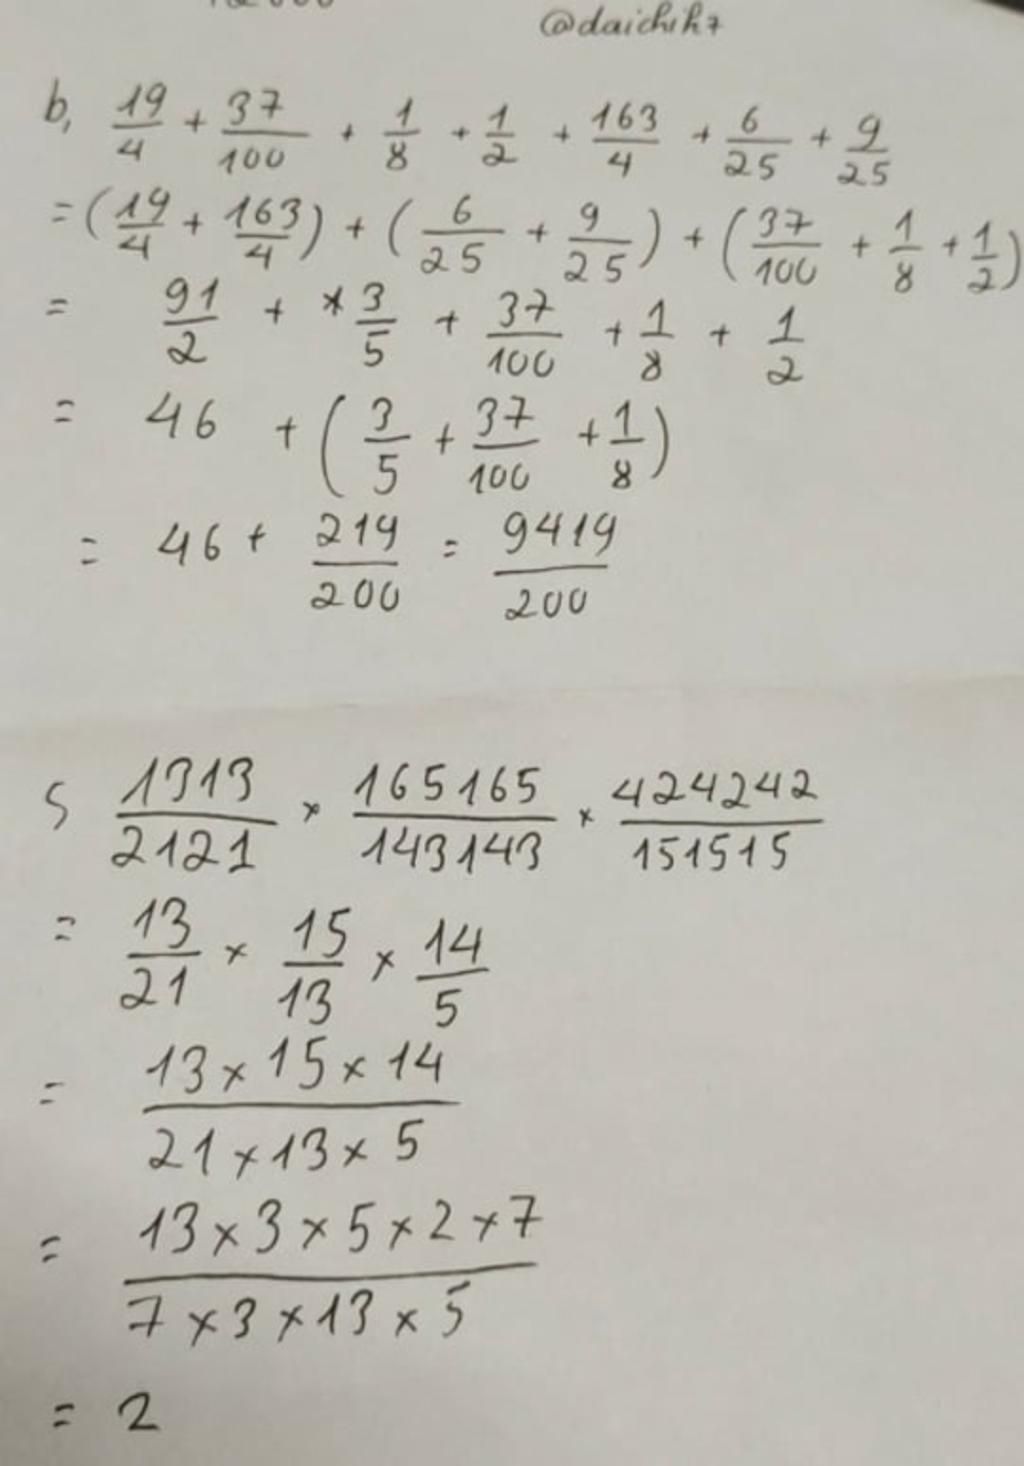 @daichih7
b, 19/4 + 37/100 + 1/8 + 1/2 + 163/4 + 6/25 + 9/25
= (19/4 + 163/4) + (6/25 + 9/25) + (37/100 + 1/8 + 1/2)
= 91/2 + 3/5 + 37/100 + 1/8 + 1/2
= 46 + (3/5 + 37/100 + 1/8)
= 46 + 219/200 = 9419/200
5 1313/2121 × 165165/143143 × 424242/151515
= 13/21 × 15/13 × 14/5
= 13 × 15 × 14 / 21 × 13 × 5
= 13 × 3 × 5 × 2 × 7 / 7 × 3 × 13 × 5
= 2